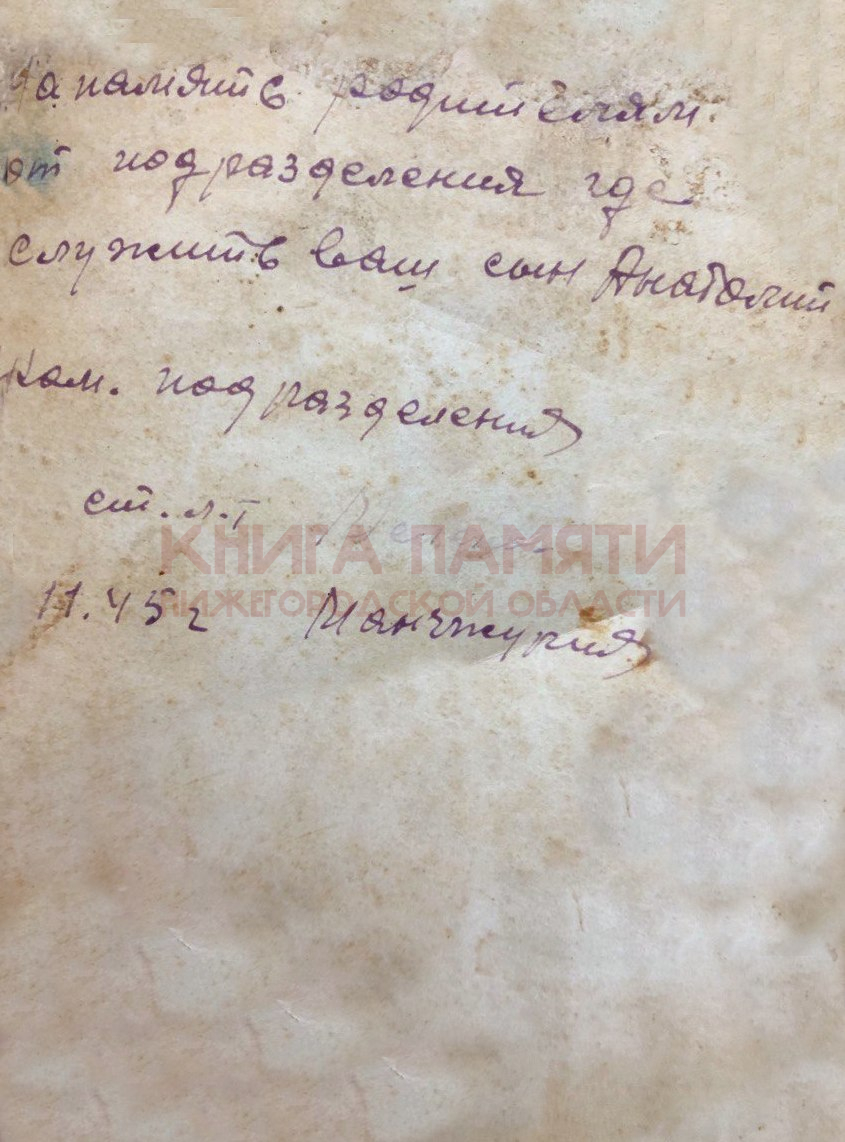 На память родителям.
от подразделения где
служить ваш сын Анатолий
Ком. подразделения
ст. л.т
КНИГА ПАМЯТИ
НИЖЕГОРОДСКОЙ ОБЛАСТИ
11.45г Манчжурия